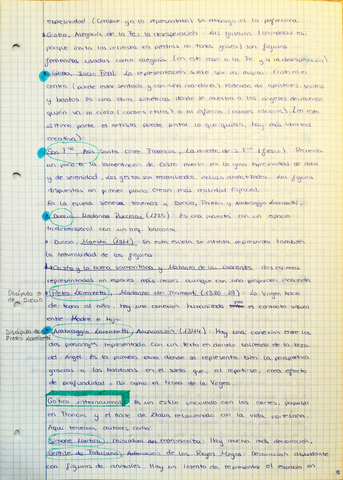 expresividad (Cimabue ya lo representaba) su mensaje es la panorama.
Giotto, Alegoría de la Fe y la desesperación. Las grisallas (llamadas así
porque imita los relieves en piedras no tonos grises) son figuras
femeninas usadas como alegoría (en este caso a la Fe y a la desesperación)
Giotto, Juicio Final. La representación suele ser la misma: Cristo en el
centro (puede estar sentado y con una mandorla), rodeado de apóstoles, santos
y beatos. Es una obra simétrica donde se muestra a los ángeles decidiendo
quién va al cielo (colores claros) o al infierno (colores oscuros). (en este
último parte el artista puede pintar lo que quiera, hay más libertad
creativa)
Asís, Santa Croce Florencia, La muerte de S. Fco
un poco a la lamentación de Cristo muerto en la gran expresividad de dolor
y de serenidad. Los gestos son teatralizados, incluso exagerados. Las figuras
dispuestas en primer plano crean más realidad espacial.
En la escuela sienesa tenemos a Duccio, Pietro y Ambroggio Lorenzetti.
Duccio, Madonna Rucellai (1285). Es una maestá con un espacio
tridimensional con un arq. barroca.
Duccio, Maestá (1311). En esta escuela se intenta representar también
la naturalidad de las figuras
Cristo y la buena samaritana y Matanza de los inocentes, dos escenas
representadas en espacios más reales aunque con una proporción incorrecta
Discípulo de Duccio
Pietro Lorenzetti, Madonna dei Tramonti (1320-25). La Virgen hace
de trono al niño, hay una conexión humanizada por el contacto visual
entre Madre e Hijo.
Discípulo de Pietro Lorenzetti
Ambroggio Lorenzetti, Anunciación (1344). Hay una conexión entre los
dos personajes representado con un texto en dorado saliendo de la boca
del Ángel. Es la primera obra donde se representa bien la perspectiva
gracias a las baldosas en el suelo que, al repetirse, crea efecto
de profundidad, así como el trono de la Virgen.
Gótico internacional. Es un estilo vinculado con las cortes, popular
en Francia, y el norte de Italia relacionado con la vida cortesana.
Aquí tenemos autores como:
Simone Martini, Hay mucha más decoración,
Gentile da Fabriano, Adoración de los Reyes Magos. Decoración abundante
con figuras de animales. Hay un intento de representar el espacio en